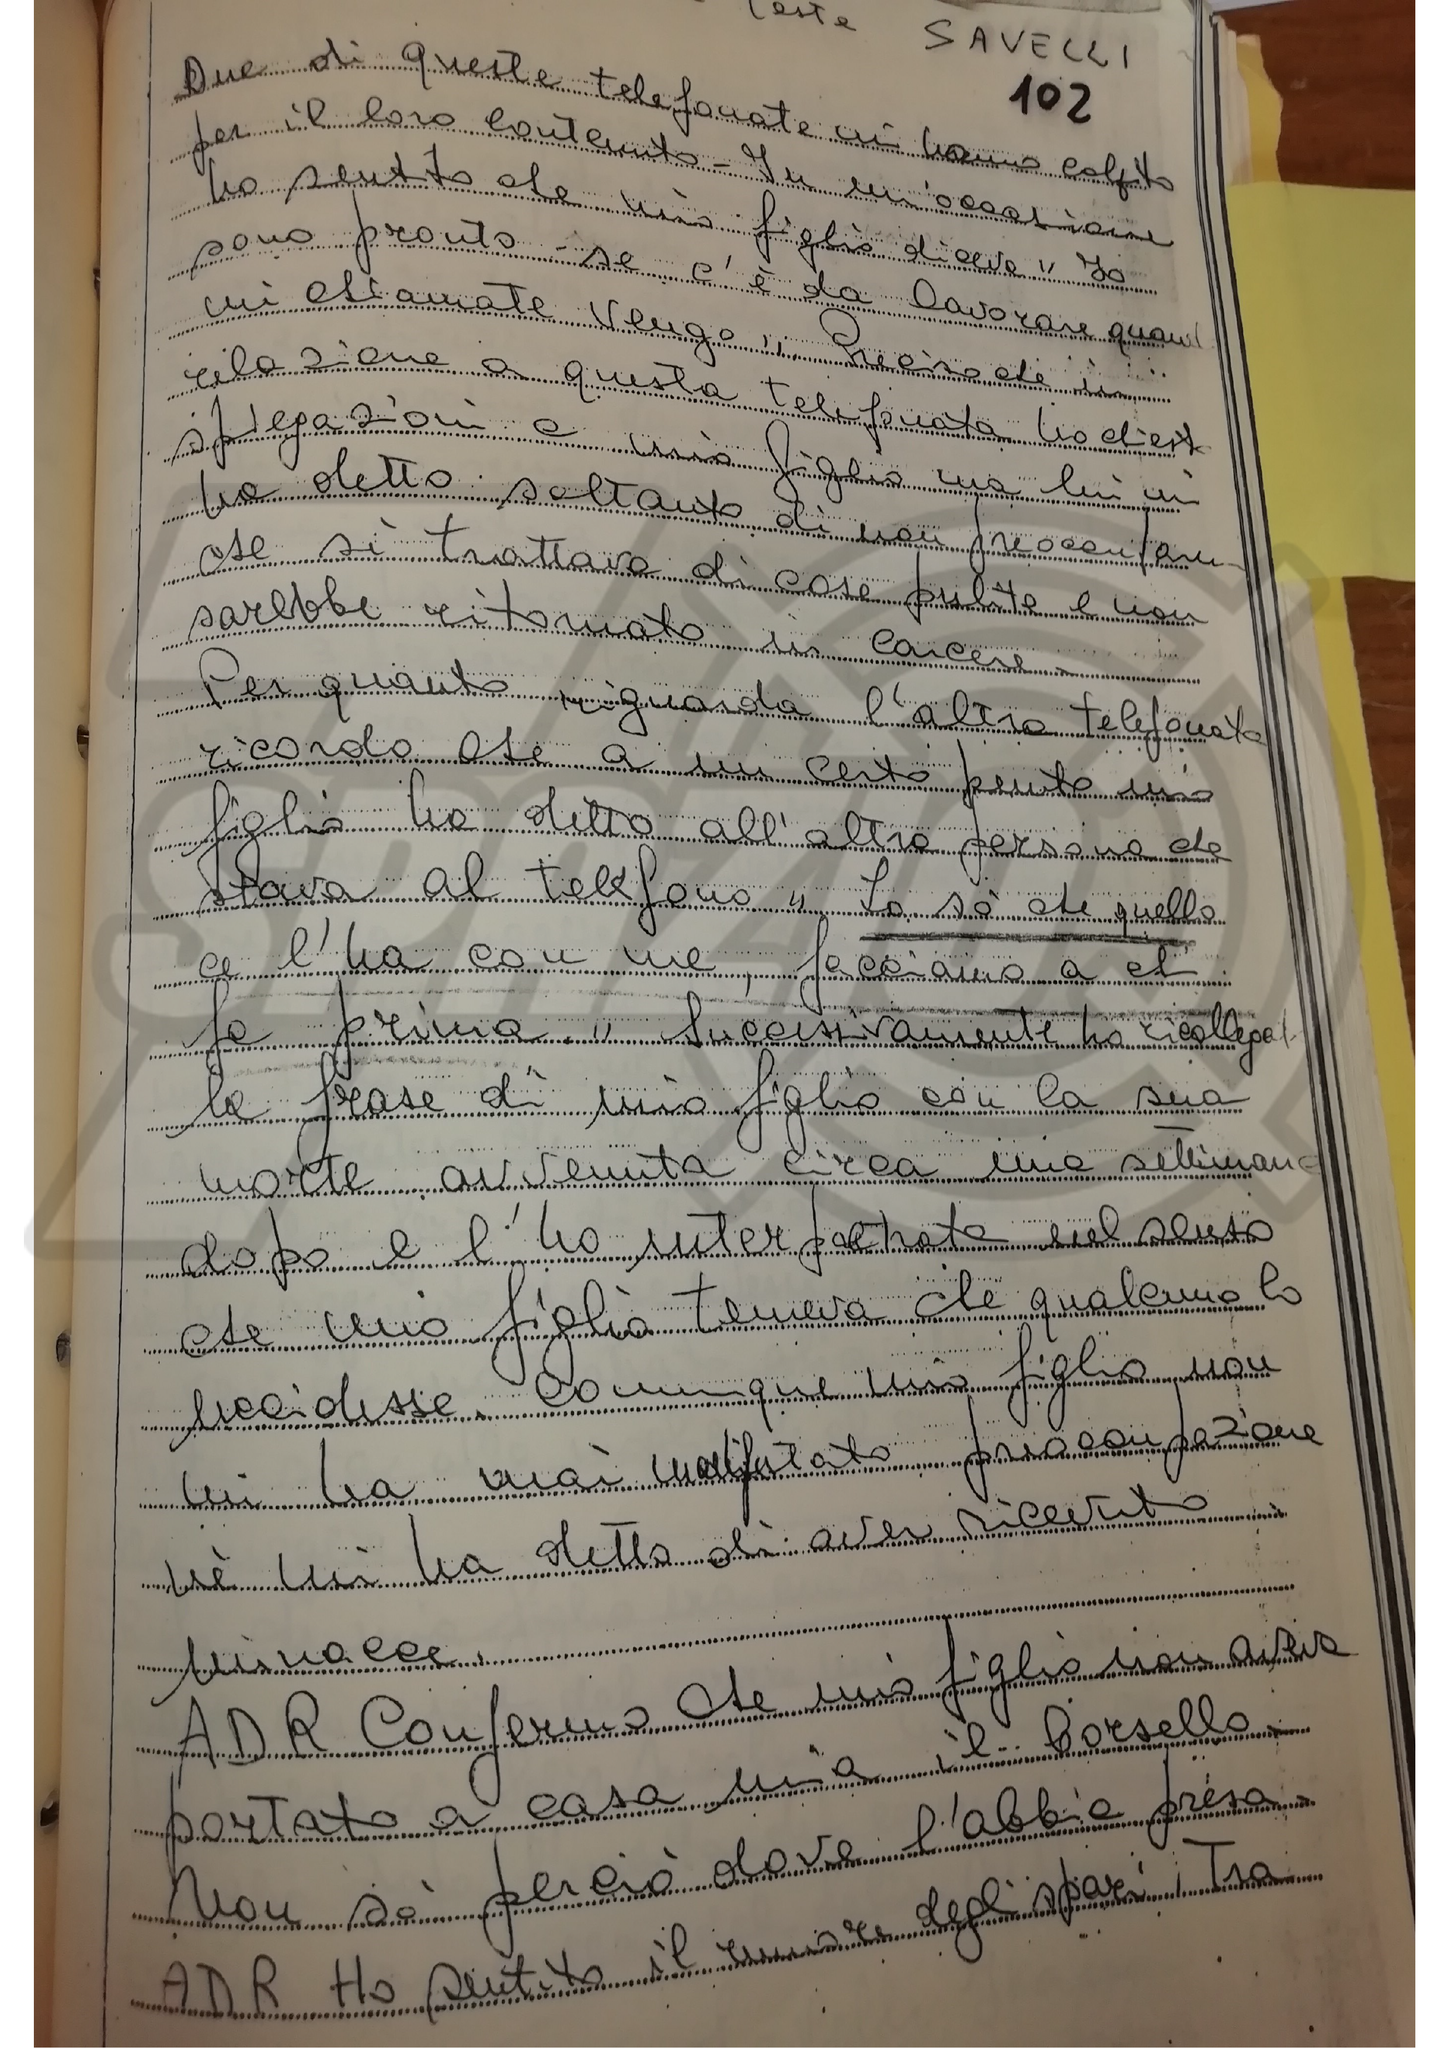 teste SAVELLI
102
Due di queste telefonate mi hanno colpito
per il loro contenuto - In un'occasione
ho sentito che mio figlio diceva " Io
sono pronto - se c'è da lavorare quand
mi chiamate vengo ". Preciso che in
relazione a questa telefonata ho chiest
spiegazioni a mio figlio ma lui mi
ha detto soltanto di non preoccupar
che si trattava di cose pulite e non
sarebbe ritornato in carcere.
Per quanto riguarda l'altra telefonata
ricordo che a un certo punto mio
figlio ha detto all'altra persona che
stava al telefono " Lo sò che quello
ce l'ha con me, facciamo a chi
fa prima " Successivamente ho ricollegat
la frase di mio figlio con la sua
morte avvenuta circa una settimana
dopo e l'ho interpretata nel senso
che mio figlio temeva che qualcuno lo
uccidesse. Comunque mio figlio non
mi ha mai preoccupazione
nè mi ha detto di aver ricevuto
minacce.
ADR Confermo che mio figlio non aveva
portato a casa mia il borsello.
Non sò perciò dove l'abbia presa.
ADR Ho sentito il rumore degli spari, Tra